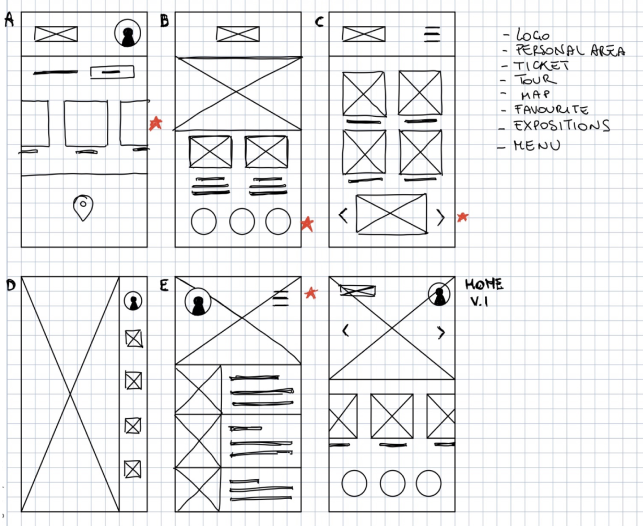 A
B
C
- LOGO
- PERSONAL AREA
- TICKET
- TOUR
- MAP
- FAVOURITE
- EXPOSITIONS
- MENU
D
E
HOME
V.1